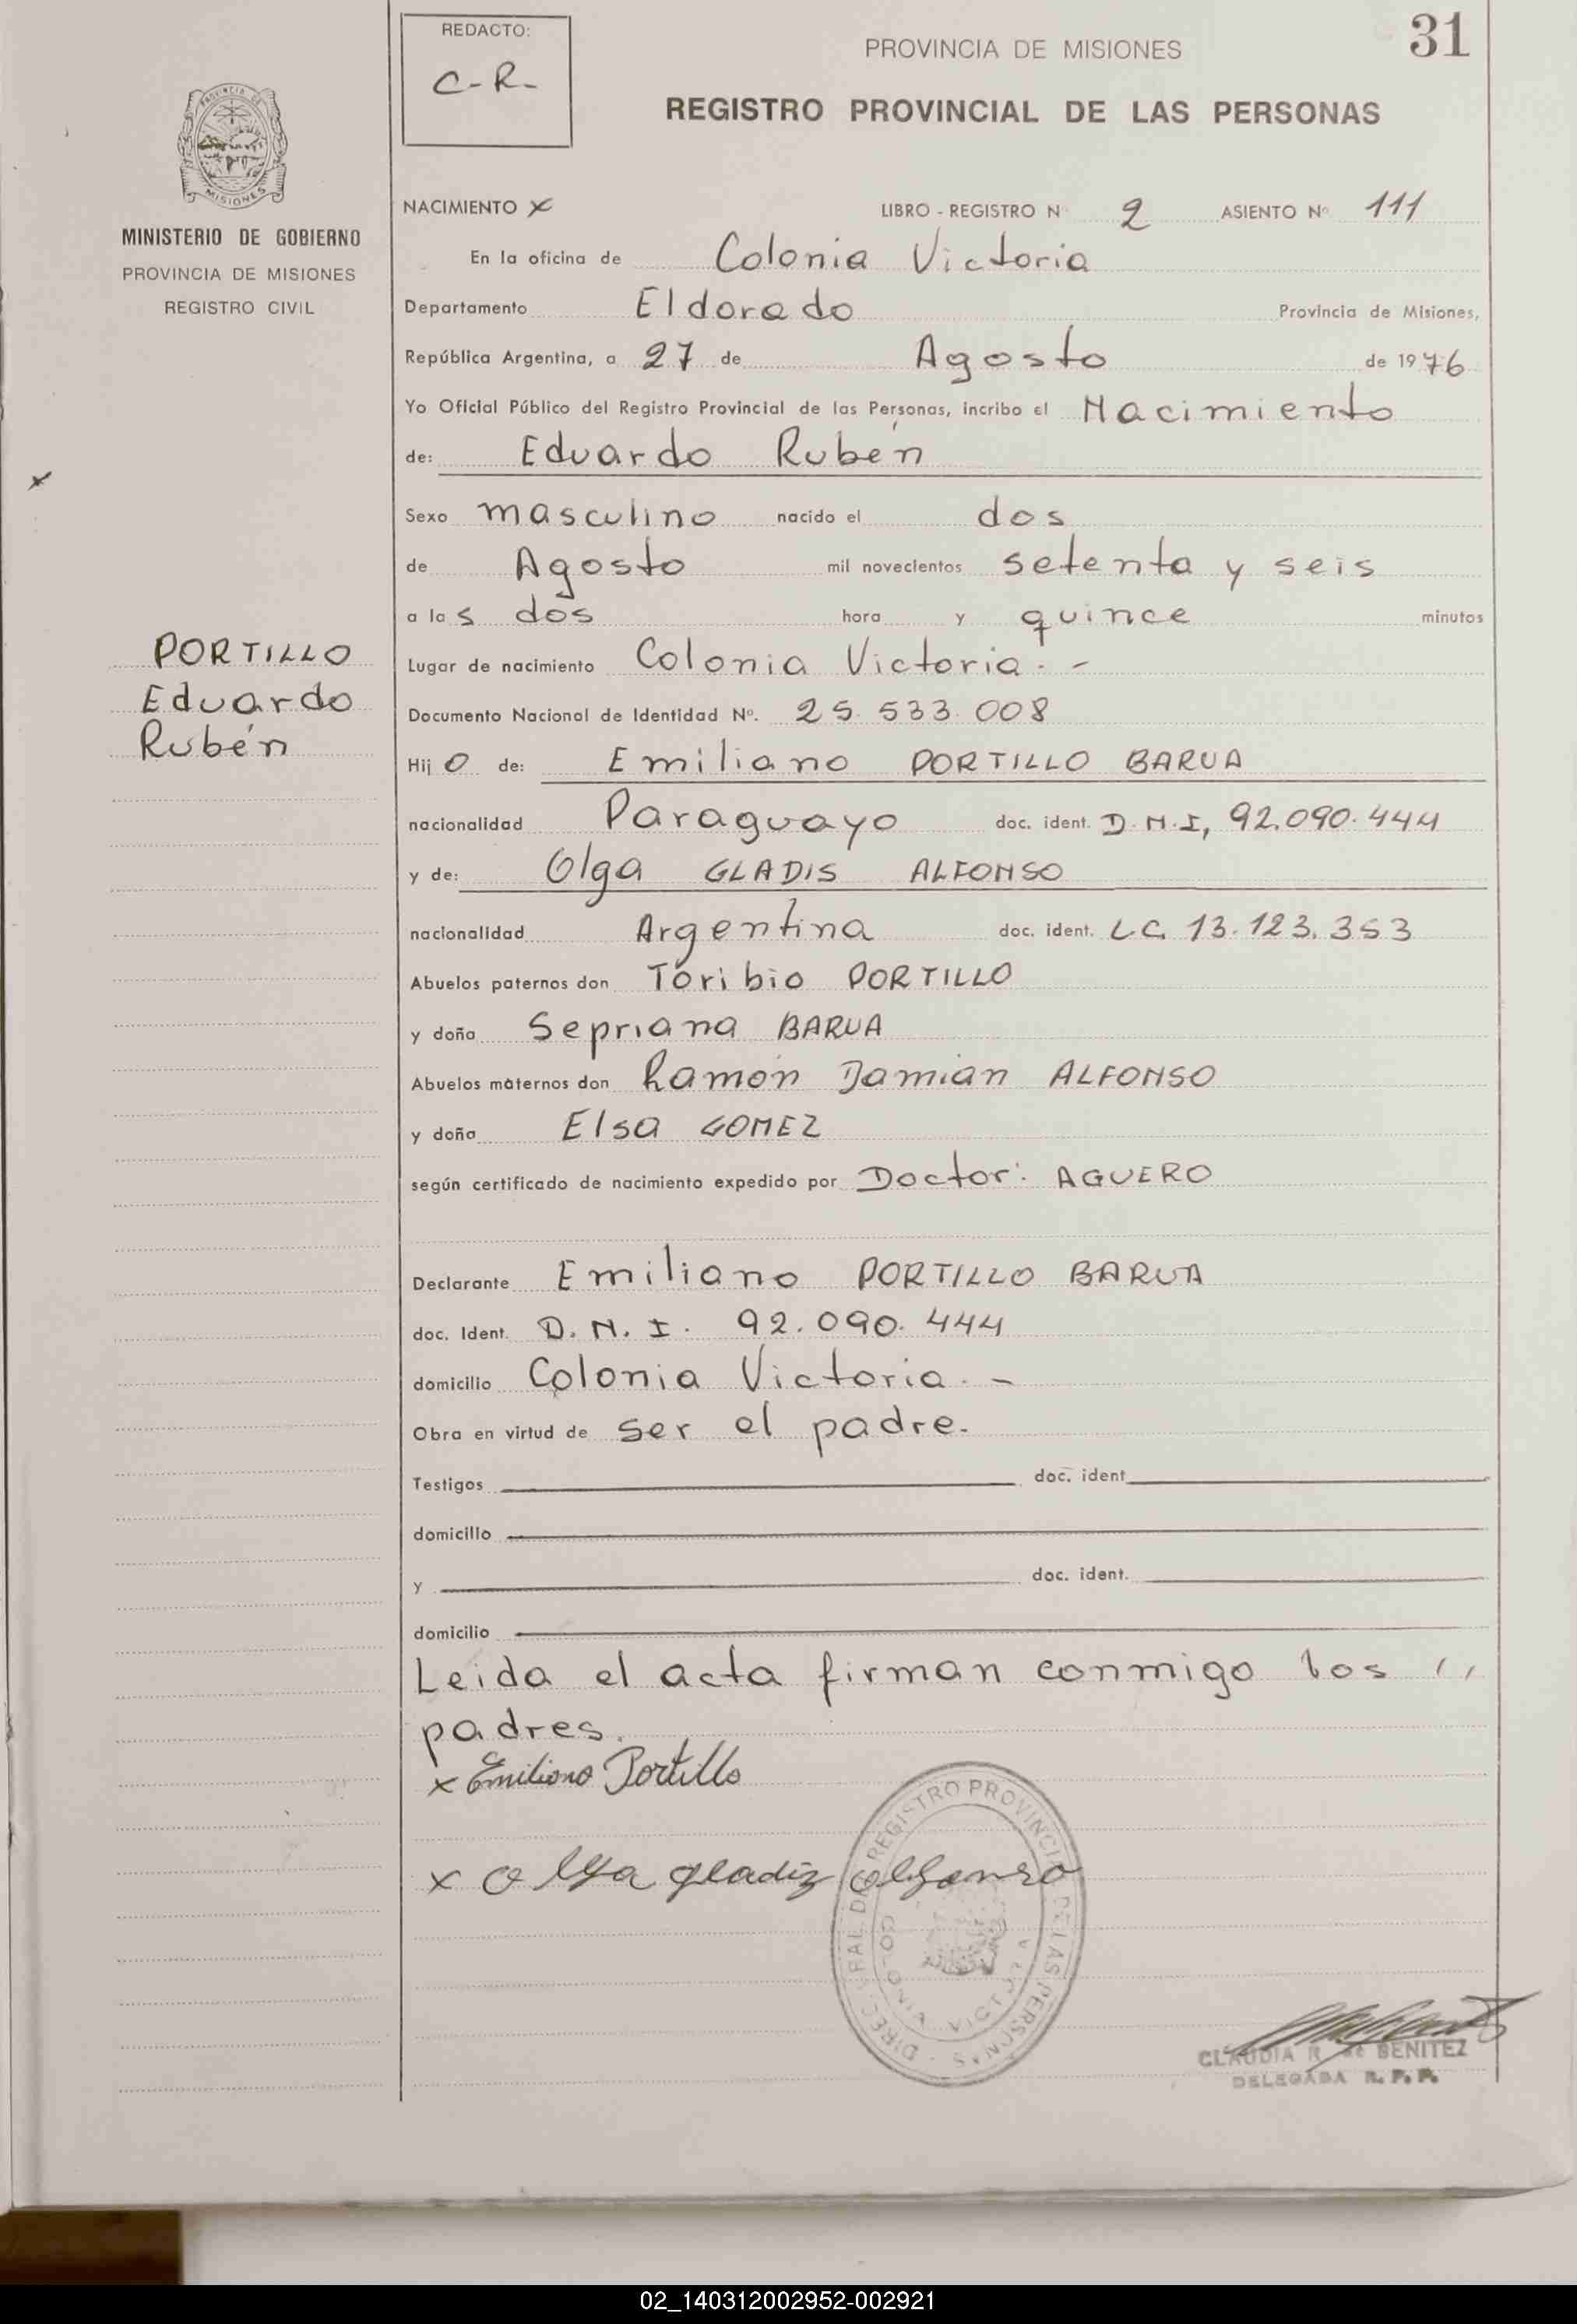 REDACTO:
C-R-
PROVINCIA DE MISIONES
31
REGISTRO PROVINCIAL DE LAS PERSONAS
PROVINCIA DE
MISIONES
MINISTERIO DE GOBIERNO
PROVINCIA DE MISIONES
REGISTRO CIVIL
NACIMIENTO X LIBRO - REGISTRO Nº 2 ASIENTO Nº 111
En la oficina de Colonia Victoria
Departamento Eldorado Provincia de Misiones,
República Argentina, a 27 de Agosto de 1976
Yo Oficial Público del Registro Provincial de las Personas, incribo el Nacimiento
de: Eduardo Rubén
Sexo masculino nacido el dos
de Agosto mil novecientos setenta y seis
a las dos hora y quince minutos
PORTILLO
Eduardo
Rubén
Lugar de nacimiento Colonia Victoria. -
Documento Nacional de Identidad Nº. 25.533.008
Hijo de: Emiliano PORTILLO BARUA
nacionalidad Paraguayo doc. ident. D.N.I, 92.090.444
y de: Olga GLADIS ALFONSO
nacionalidad Argentina doc. ident. L.C. 13.123.353
Abuelos paternos don Toribio PORTILLO
y doña Sepriana BARUA
Abuelos maternos don Ramón Damián ALFONSO
y doña Elsa GOMEZ
según certificado de nacimiento expedido por Doctor: AGUERO
Declarante Emiliano PORTILLO BARUA
doc. Ident. D.N.I. 92.090.444
domicilio Colonia Victoria. -
Obra en virtud de ser el padre.
Testigos doc. ident
domicilio
y doc. ident.
domicilio
Leida el acta firman conmigo los //
padres.
x Emiliano Portillo
x Olga gladiz alfonso
DIREC. GRAL. DE REGISTRO PROVINCIAL DE LAS PERSONAS
COLONIA VICTORIA
CLAUDIA R. de BENITEZ
DELEGADA R. P. P.
02_140312002952-002921